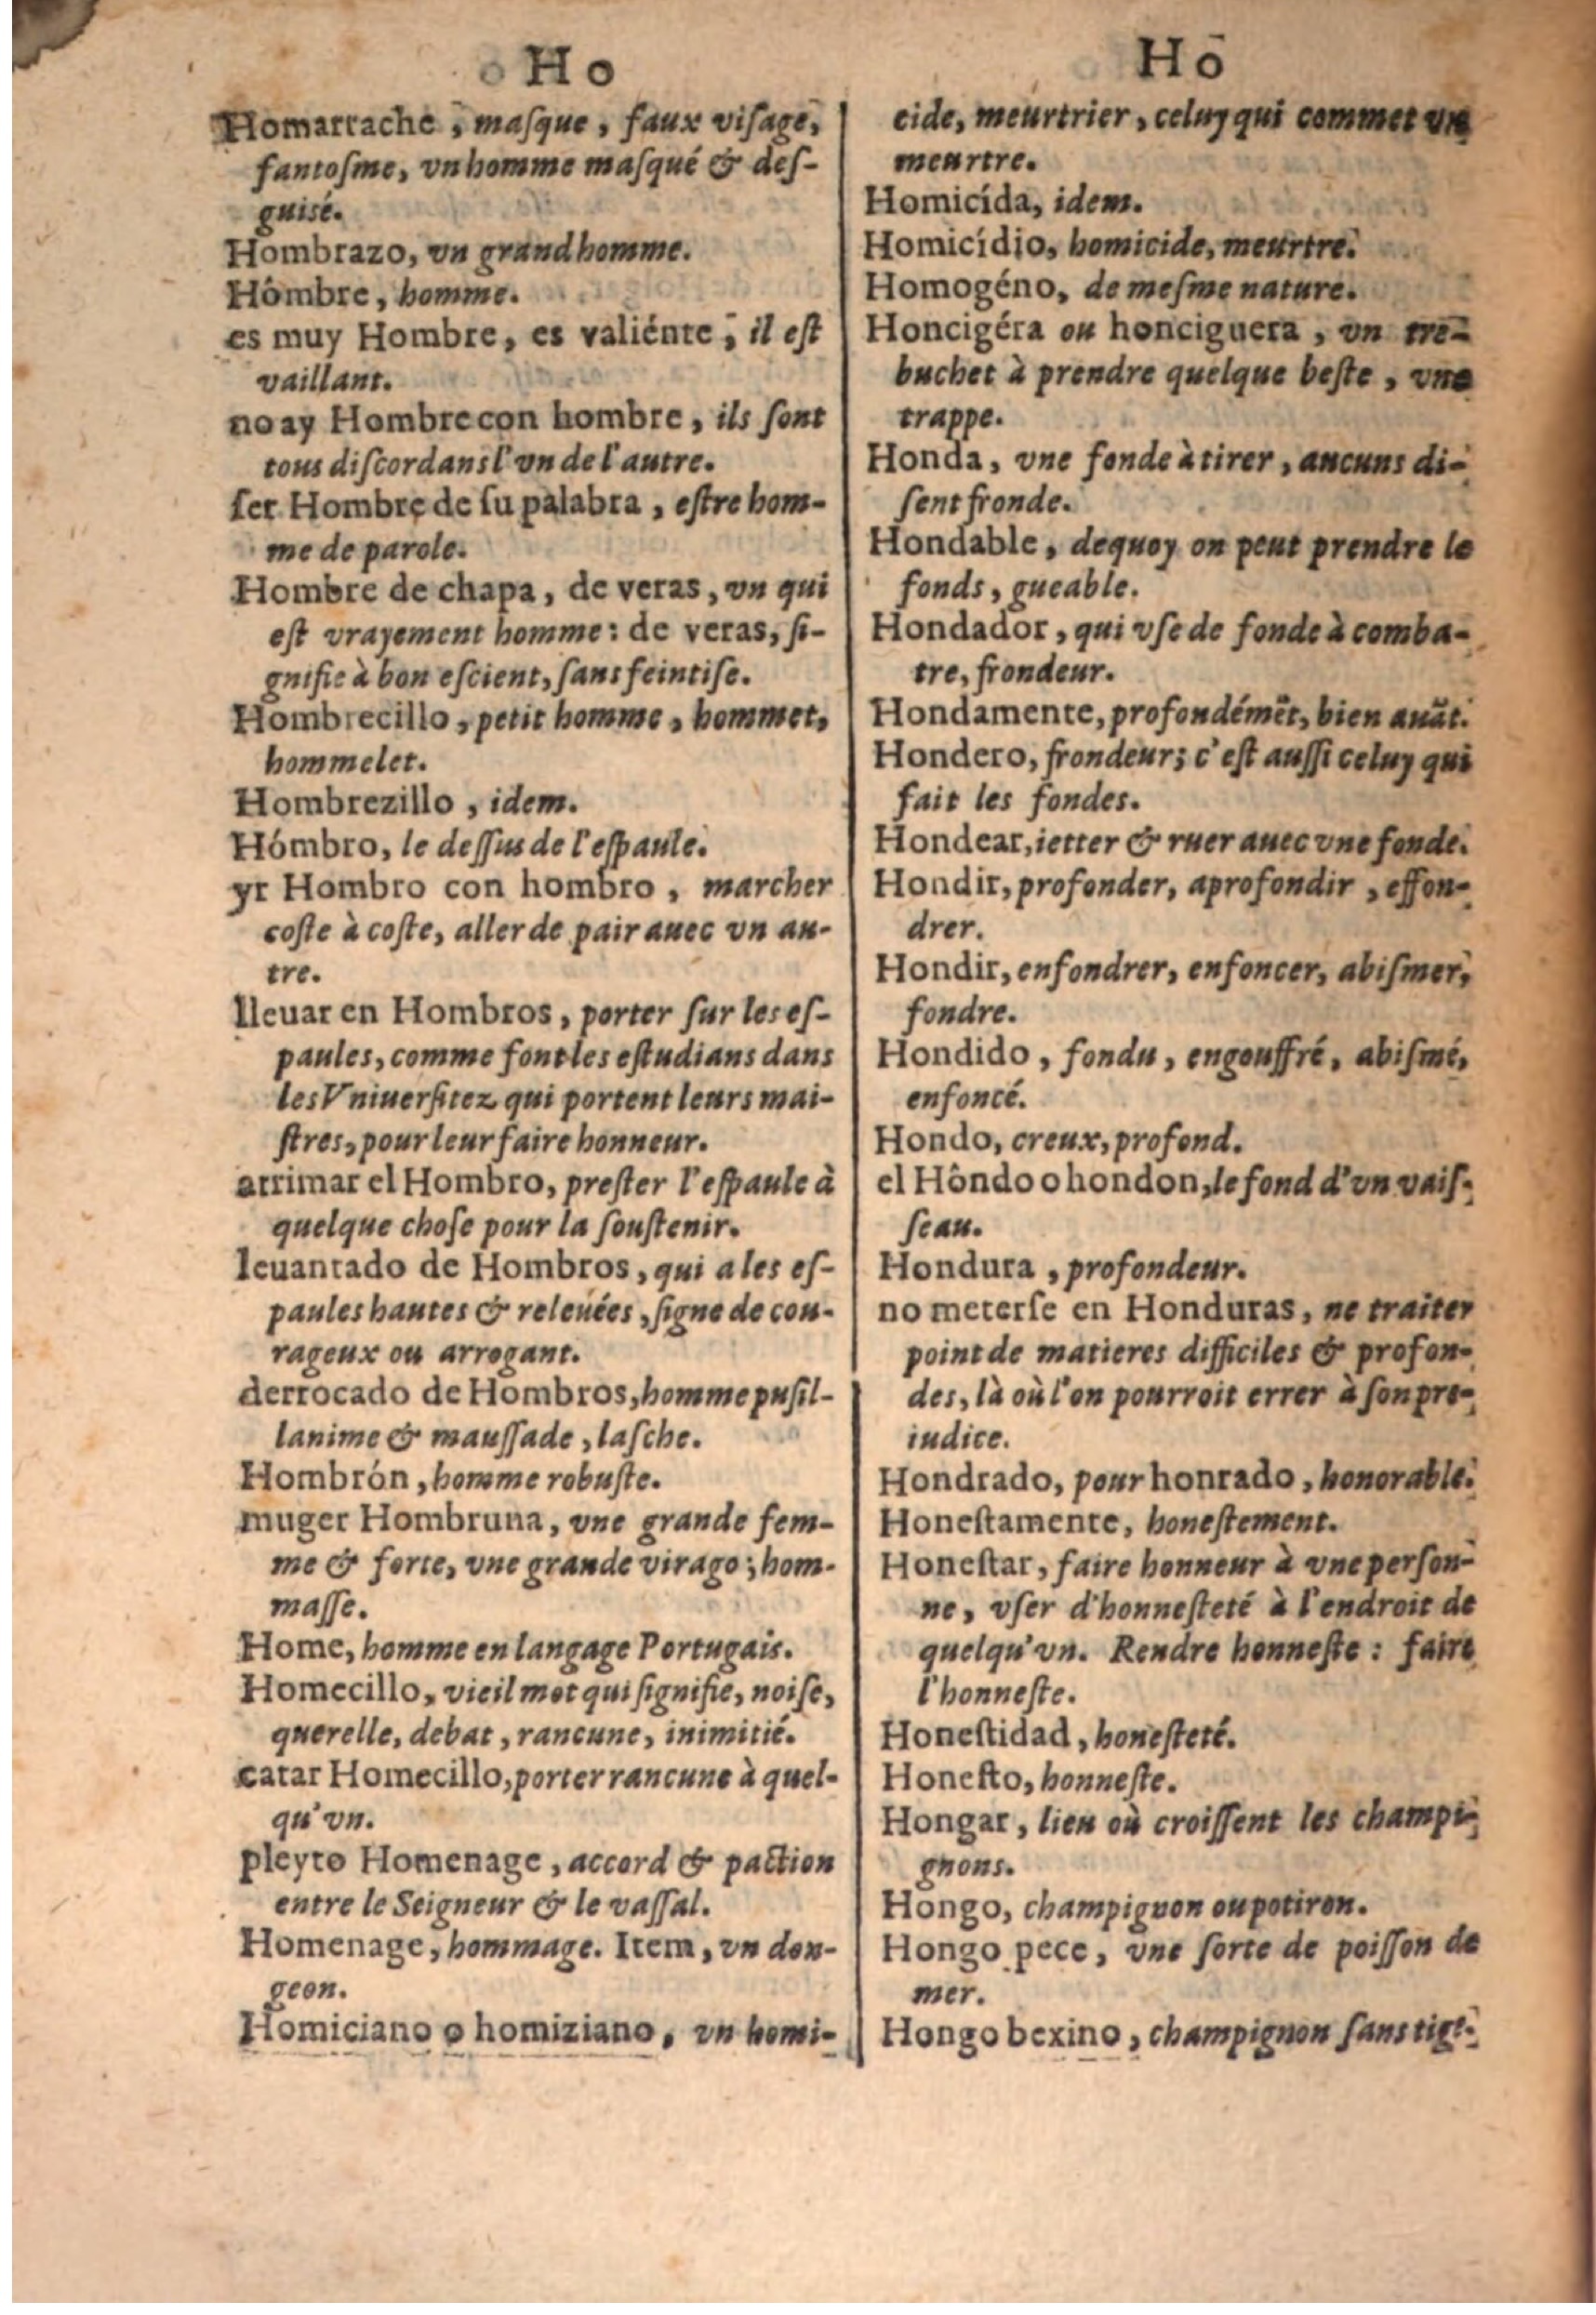 Ho
Homarrache, maſque, faux viſage,
fantoſme, vn homme maſqué & deſ-
guisé.
Hombrazo, vn grand homme.
Hômbre, homme.
es muy Hombre, es valiénte, il eſt
vaillant.
no ay Hombre con hombre, ils ſont
tous diſcordans l'vn de l'autre.
ſer Hombre de ſu palabra, eſtre hom-
me de parole.
Hombre de chapa, de veras, vn qui
eſt vrayement homme: de veras, ſi-
gnifie à bon eſcient, ſans feintiſe.
Hombrecillo, petit homme, hommet,
hommelet.
Hombrezillo, idem.
Hómbro, le deſſus de l'eſpaule.
yr Hombro con hombro, marcher
coſte à coſte, aller de pair auec vn au-
tre.
lleuar en Hombros, porter ſur les eſ-
paules, comme font les eſtudians dans
les Vniuerſitez qui portent leurs mai-
ſtres, pour leur faire honneur.
arrimar el Hombro, preſter l'eſpaule à
quelque choſe pour la ſouſtenir.
leuantado de Hombros, qui a les eſ-
paules hautes & releuées, ſigne de cou-
rageux ou arrogant.
derrocado de Hombros, homme puſil-
lanime & mauſſade, laſche.
Hombrón, homme robuſte.
muger Hombruna, vne grande fem-
me & forte, vne grande virago, hom-
maſſe.
Home, homme en langage Portugais.
Homecillo, vieil mot qui ſignifie, noiſe,
querelle, debat, rancune, inimitié.
catar Homecillo, porter rancune à quel-
qu'vn.
pleyto Homenage, accord & paction
entre le Seigneur & le vaſſal.
Homenage, hommage. Item, vn don-
geon.
Homiciano o homiziano, vn homi-
Ho
cide, meurtrier, celuy qui commet vn
meurtre.
Homicída, idem.
Homicídio, homicide, meurtre.
Homogéno, de meſme nature.
Honcigéra ou honciguera, vn tre-
buchet à prendre quelque beſte, vne
trappe.
Honda, vne fonde à tirer, aucuns di-
ſent fronde.
Hondable, dequoy on peut prendre le
fonds, gueable.
Hondador, qui vſe de fonde à comba-
tre, frondeur.
Hondamente, profondémẽt, bien auãt.
Hondero, frondeur; c'eſt auſſi celuy qui
fait les fondes.
Hondear, ietter & ruer auec vne fonde.
Hondir, profonder, aprofondir, effon-
drer.
Hondir, enfondrer, enfoncer, abiſmer,
fondre.
Hondido, fondu, engouffré, abiſmé,
enfoncé.
Hondo, creux, profond.
el Hôndo o hondon, le fond d'vn vaiſ-
ſeau.
Hondura, profondeur.
no meterſe en Honduras, ne traiter
point de matieres difficiles & profon-
des, là où l'on pourroit errer à ſon pre-
iudice.
Hondrado, pour honrado, honorable.
Honeſtamente, honeſtement.
Honeſtar, faire honneur à vne perſon-
ne, vſer d'honneſteté à l'endroit de
quelqu'vn. Rendre honneſte: faire
l'honneſte.
Honeſtidad, honeſteté.
Honeſto, honneſte.
Hongar, lieu où croiſſent les champi-
gnons.
Hongo, champignon ou potiron.
Hongo pece, vne ſorte de poiſſon de
mer.
Hongo bexino, champignon ſans tige.